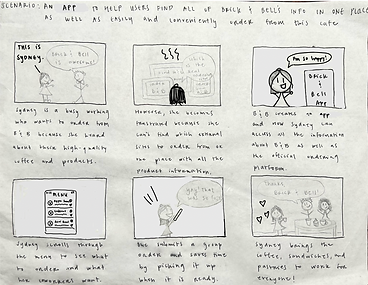 SCENARIO: AN APP TO HELP USERS FIND ALL OF BRICK & BELLS INFO IN ONE PLACE
AS WELL AS EASILY AND CONVENIENTLY ORDER FROM THIS CAFE.
THIS IS
SYDNEY.
Brick & Bell
is awesome!
Sydney is a busy working
who wants to order from
B&B because she heard
about their high-quality
coffee and products.
However, she becomes
frustrated because she
can't find which external
sites to order from or
one place with all the
product information.
I'm so happy!
Brick
&
Bell
App
B&B creates an app
and now Sydney can
access all the information
about B&B as well as
the official ordering
platform.
MENU
Sydney scrolls through
the menu to see what
to order and what
her coworkers want.
She submits a group
order and saves time
by picking it up
when it is ready.
Thanks
Brick & Bell!
Sydney brings the
coffee, sandwiches, and
pastries to work for
everyone!